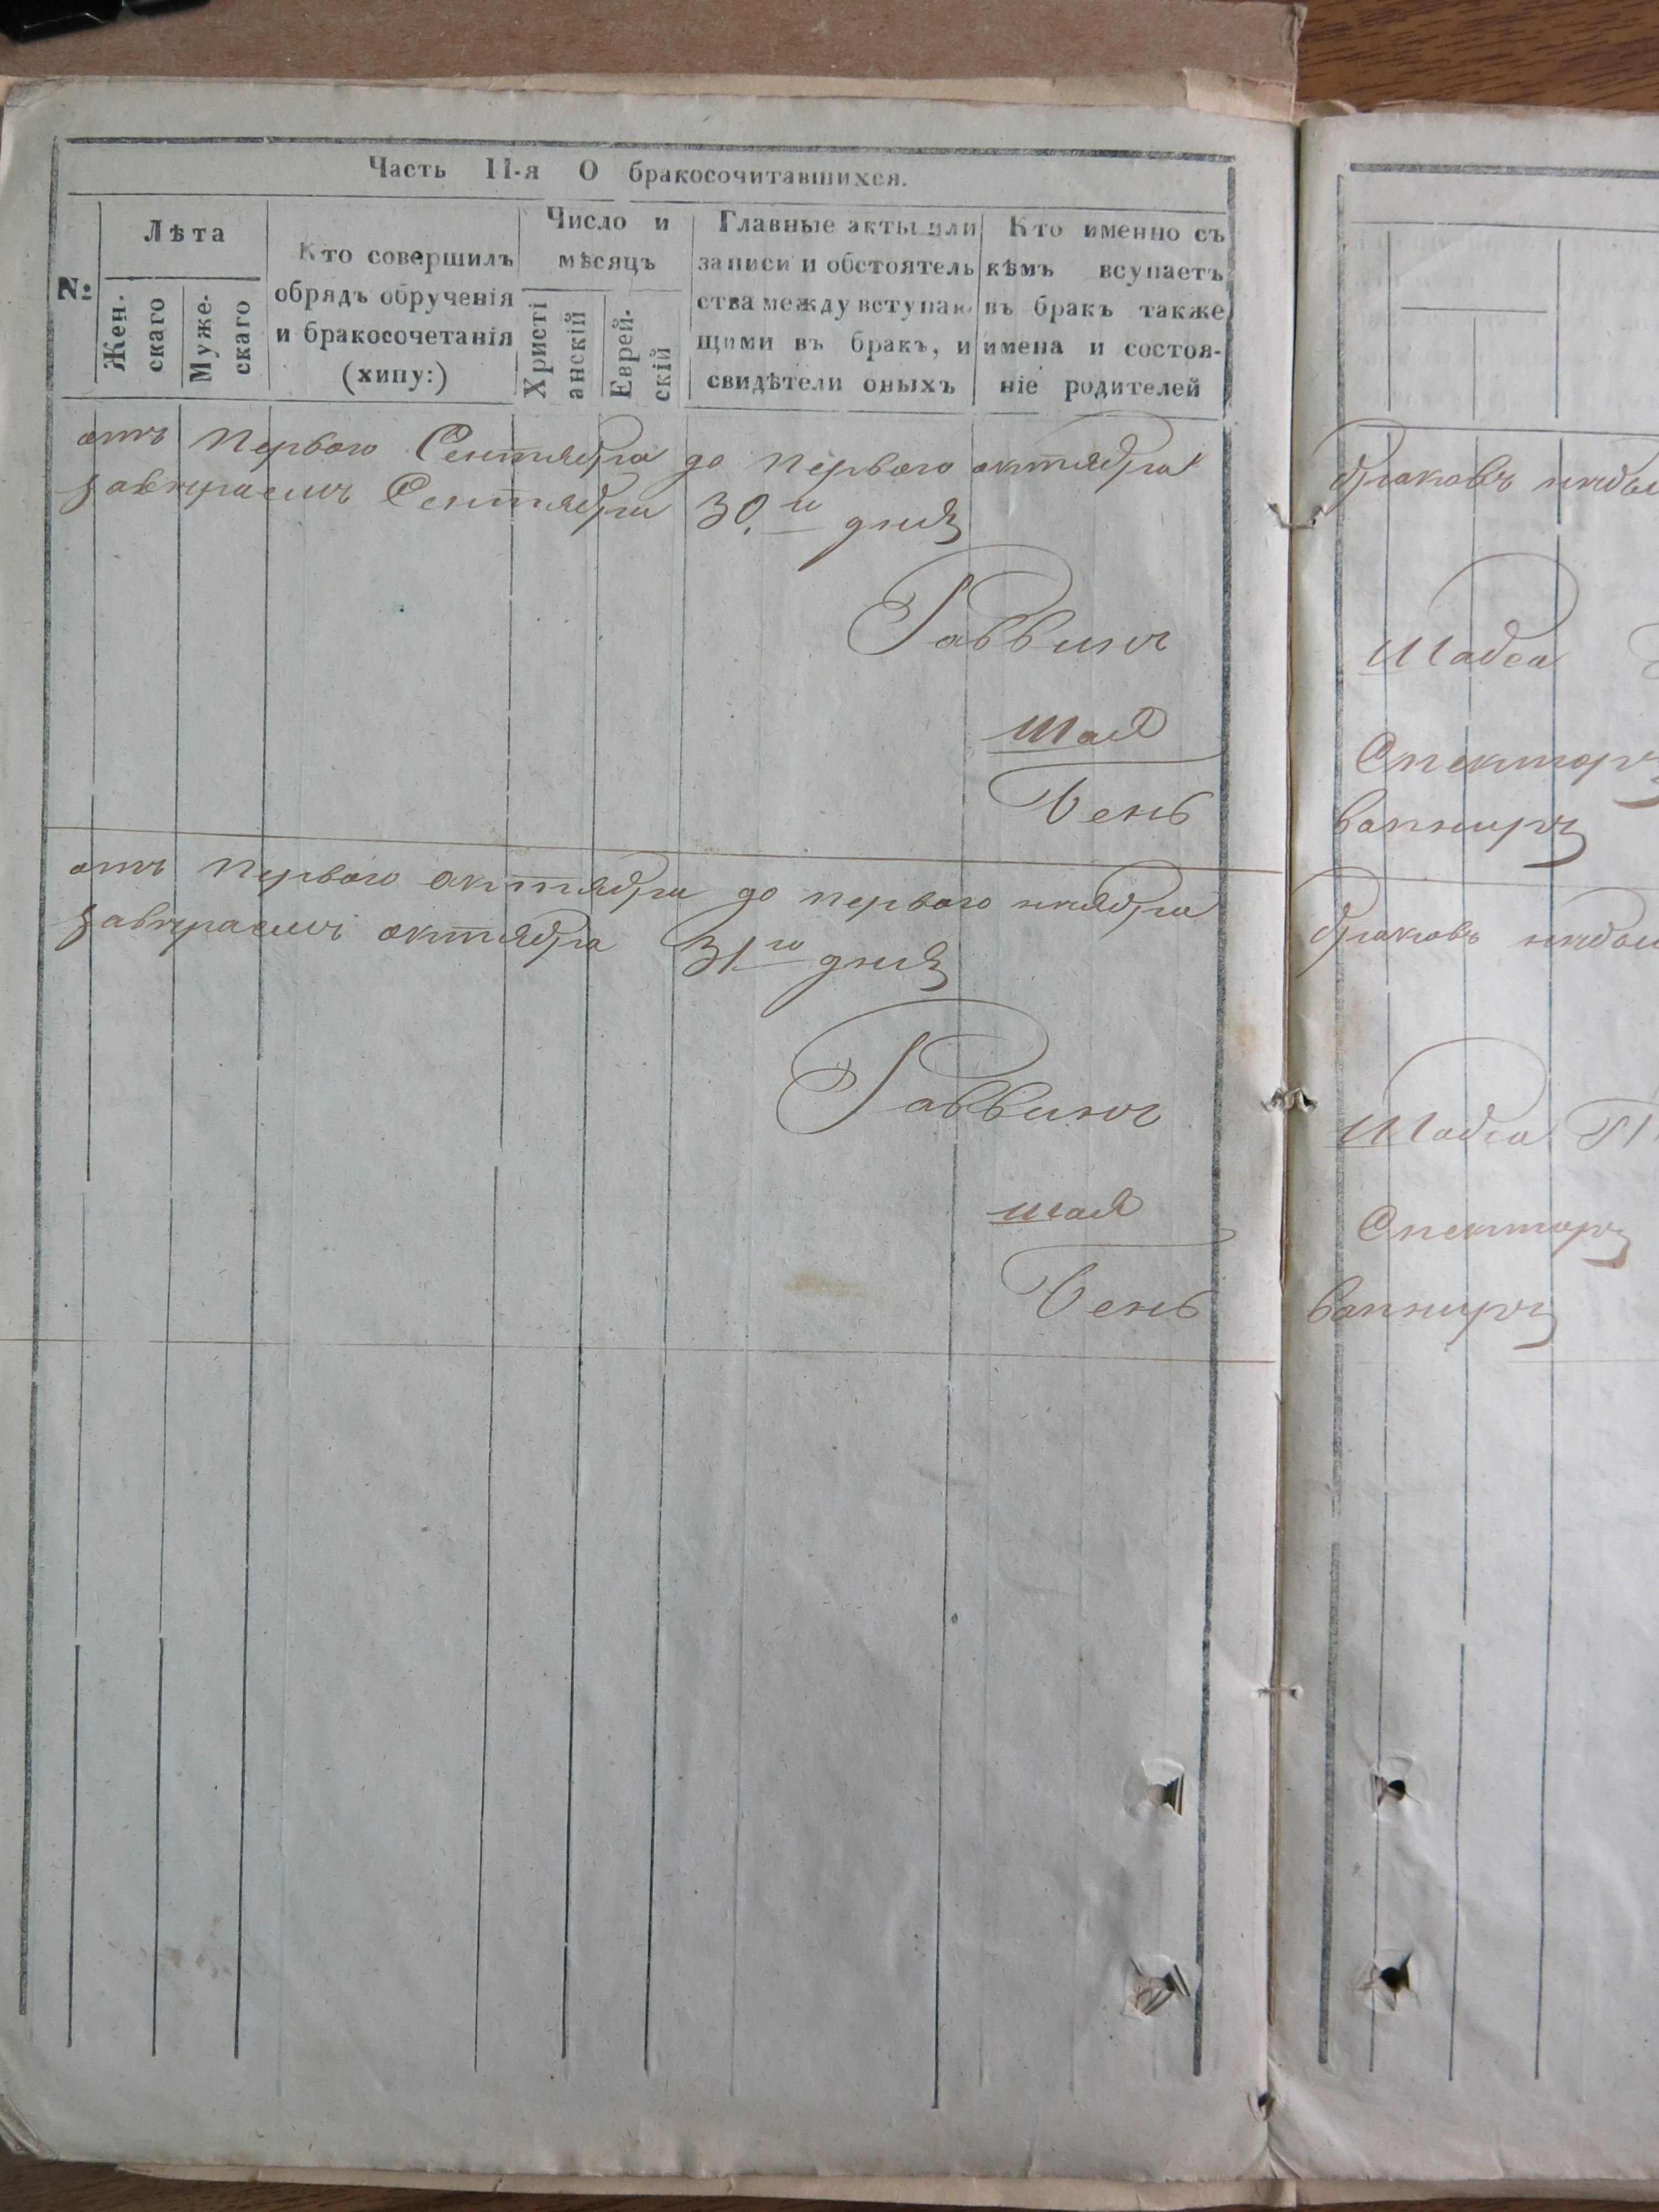 Часть II-я О бракосочитавшихся.
№
Лѣта
Жен.
скаго
Муже.
скаго
Кто совершилъ
обрядъ обрученія
и бракосочетанія
(хипу:)
Число и
мѣсяцъ
Христі
анскій
Еврей.
скій
Главные акты или
записи и обстоятель
ства между вступаю
щими въ бракъ, и
свидѣтели оныхъ
Кто именно съ
кѣмъ всупаетъ
въ бракъ также
имена и состоя-
ніе родителей
отъ Первого Сентября до первого октября
Сентября 30. го дня
Раввинъ
Шая
Бень
отъ Первого октября до первого ноября
октября 31 го дня
Раввинъ
Шая
Бень
браковъ
Шабса
Спекторъ
браковъ
Шабса
Спекторъ